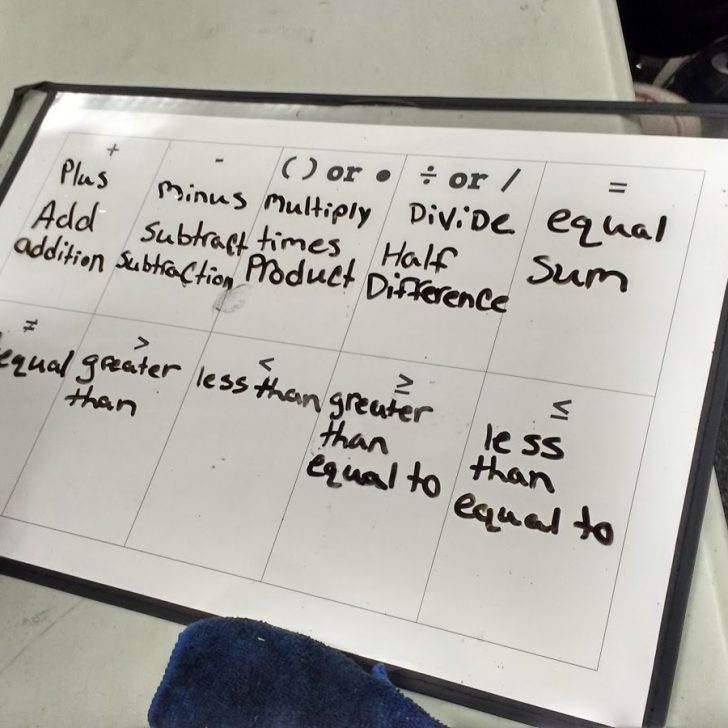 +
Plus
Add
addition
-
minus
Subtract
Subtraction
( ) or •
multiply
times
Product
÷ or /
DiviDe
Half
Difference
=
equal
sum
≠
equal
>
greater
than
<
less than
≥
greater
than
equal to
≤
less
than
equal to